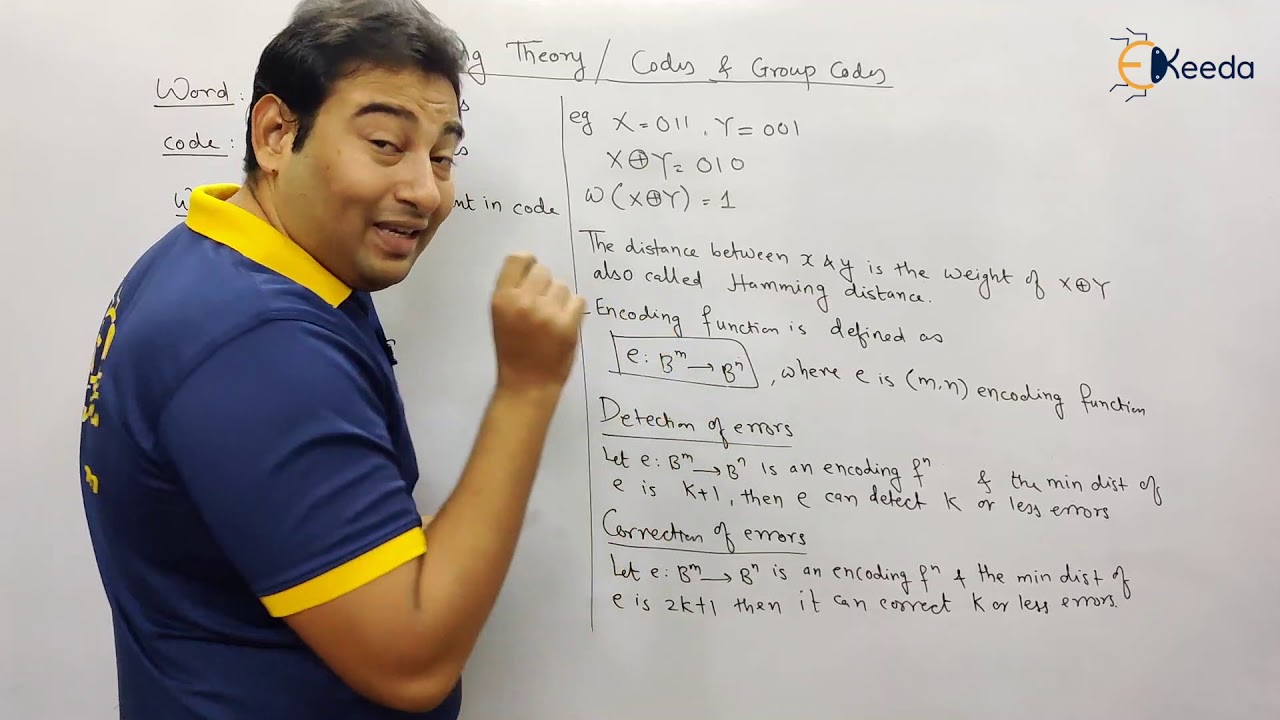 ng Theory / Codes & Group Codes
EKeeda
Word:
code:
nt in code
eg X = 011, Y = 001
X⊕Y = 010
W(X⊕Y) = 1
The distance between x & y is the weight of X⊕Y
also called Hamming distance.
- Encoding function is defined as
e: B^m → B^n, where e is (m,n) encoding function
Detection of errors
Let e: B^m → B^n is an encoding f^n & the min dist of
e is k+1, then e can detect k or less errors
Correction of errors
Let e: B^m → B^n is an encoding f^n & the min dist of
e is 2k+1 then it can correct k or less errors.